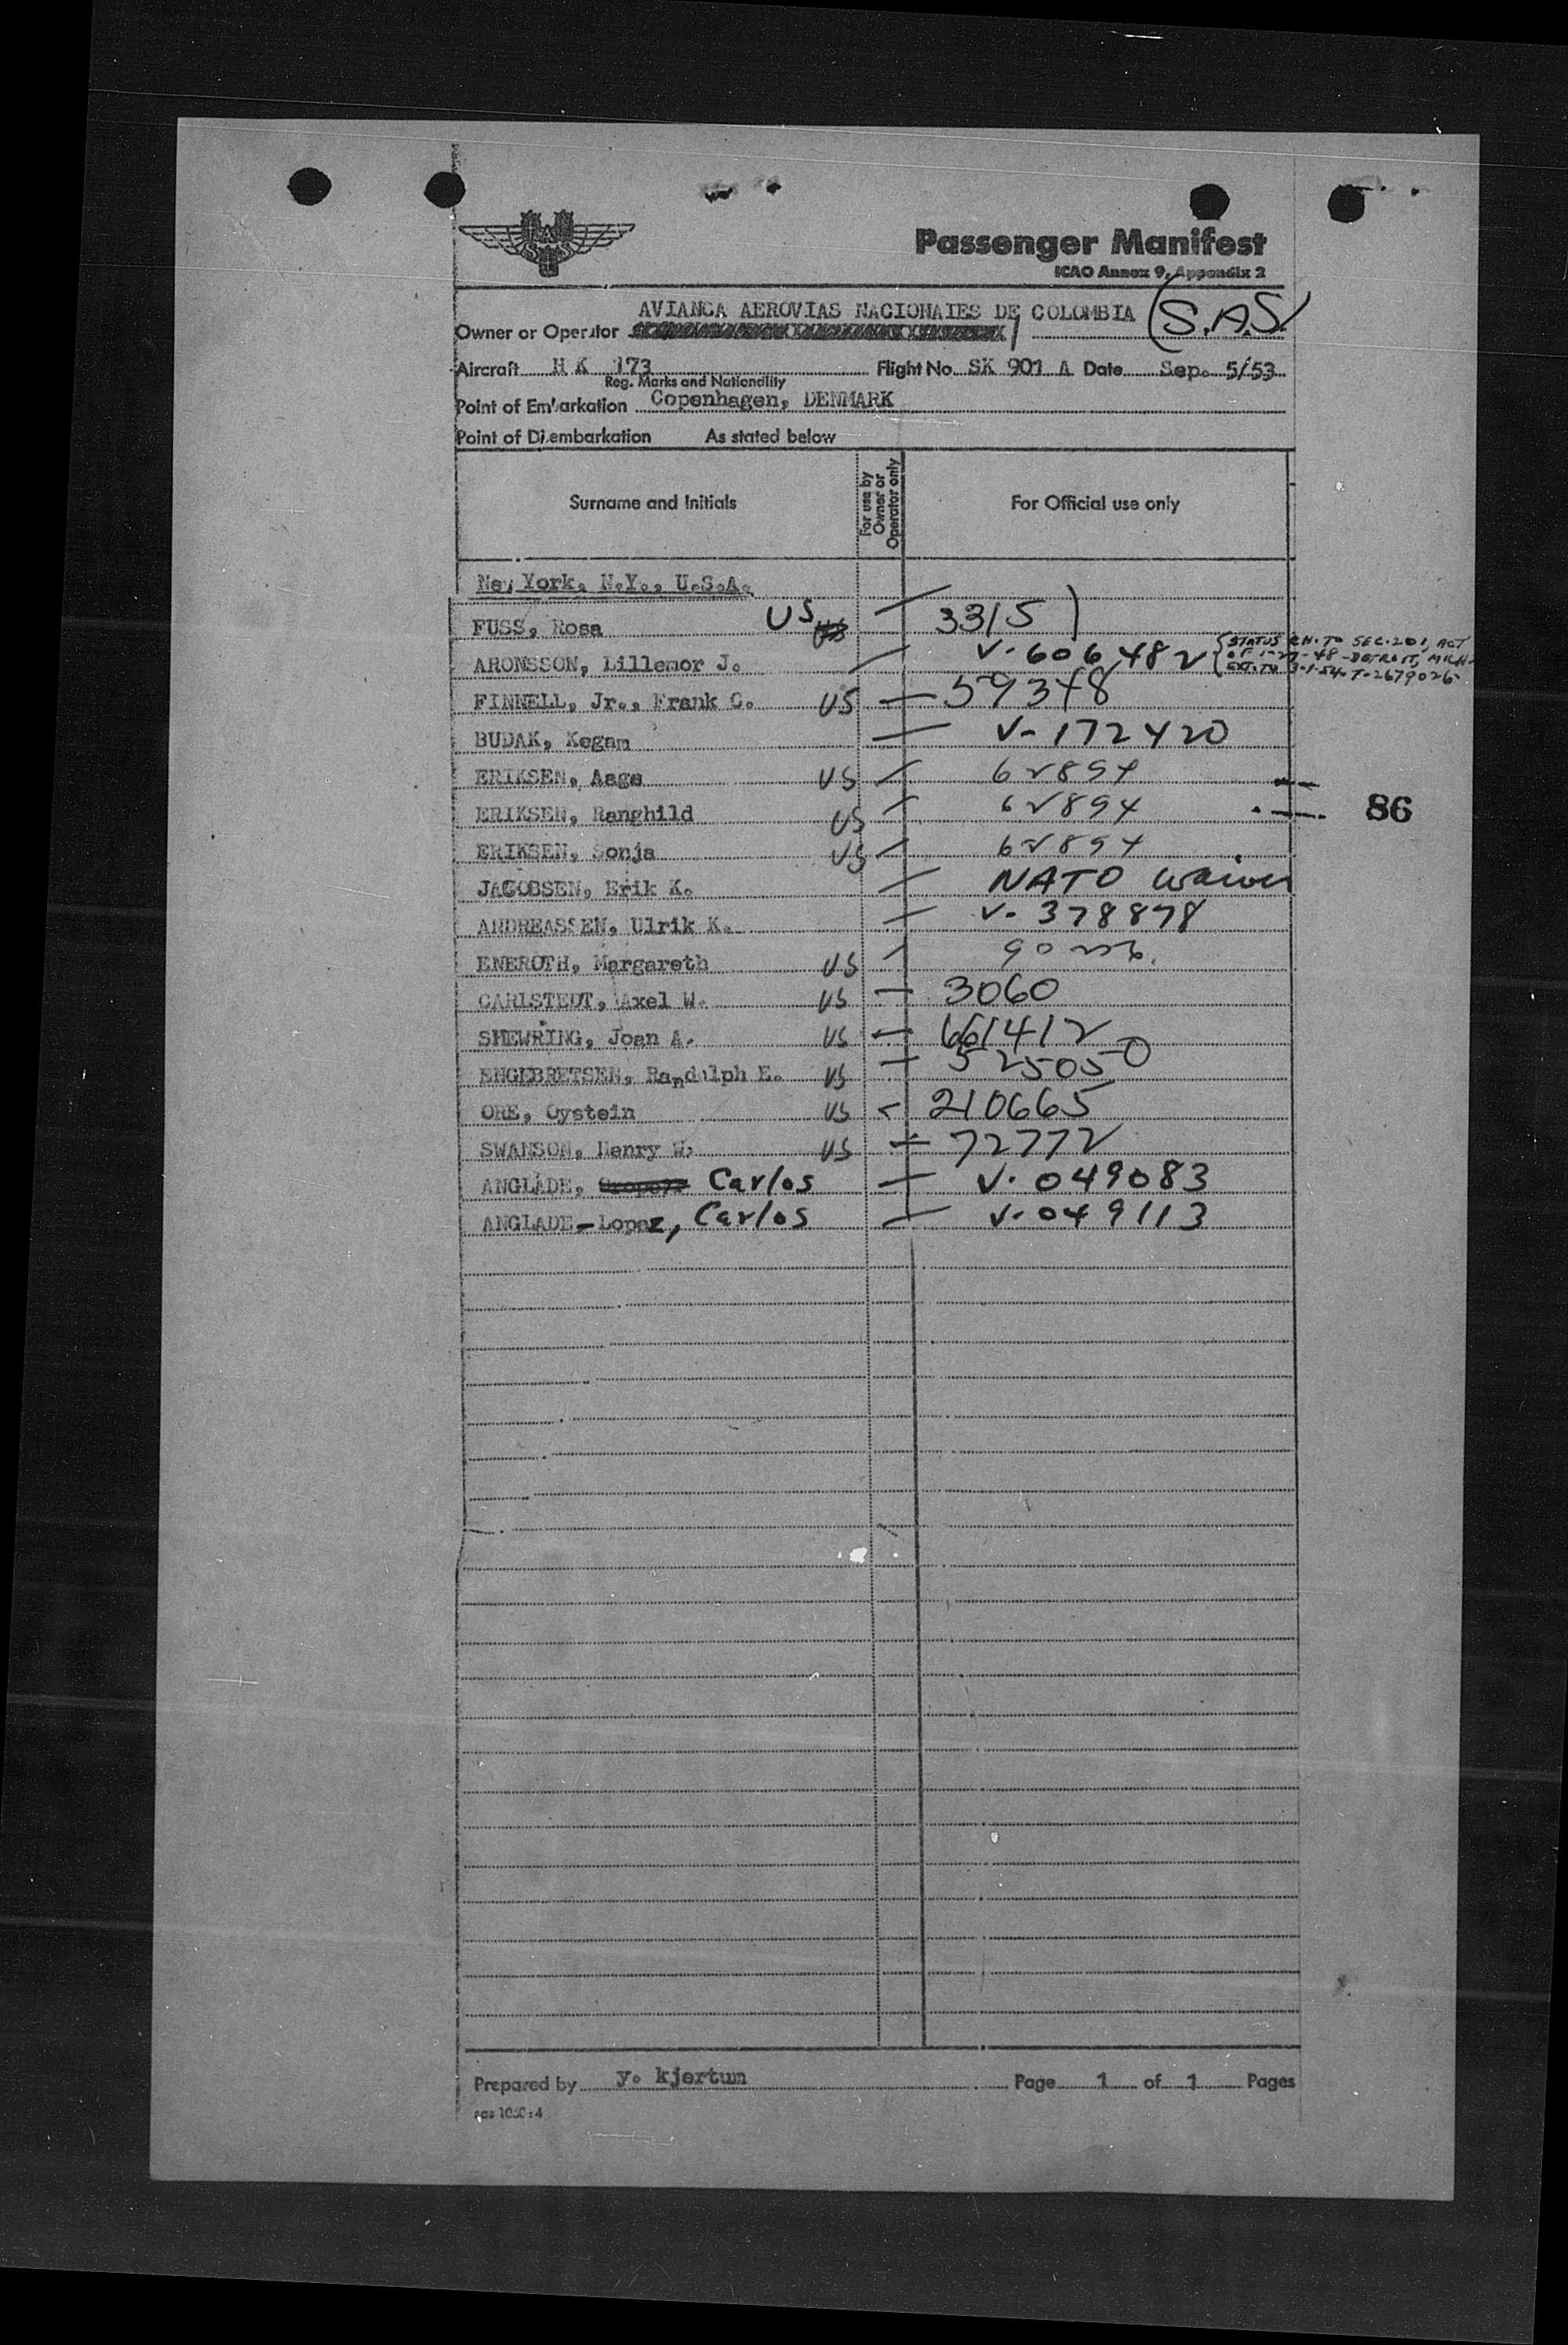 SAS
Passenger Manifest
ICAO Annex 9, Appendix 2
AVIANCA AEROVIAS NACIONALES DE COLOMBIA (S.A.S.)
Owner or Operator
Aircraft H K 173 Flight No. SK 901 A Date Sep. 5/53
Reg. Marks and Nationality
Point of Embarkation Copenhagen, DENMARK
Point of Disembarkation As stated below
Surname and Initials For use by Owner or Operator only For Official use only
New York, N.Y., U.S.A.
FUSS, Rosa US 3315
ARONSSON, Lillemor J. V-606482 STATUS CH. TO SEC. 201, ACT
OF 1-27-48-DETROIT, MICH-
EXT. TO 3-1-54-T-2679026
FINNELL, Jr., Frank C. US 59348
BUDAK, Kegam V-172420
ERIKSEN, Aage US 62894
ERIKSEN, Ranghild US 62894
86
ERIKSEN, Sonja US 62894
JACOBSEN, Erik K. NATO waiver
ANDREASSEN, Ulrik K. V-378878
ENEROTH, Margareth US
CARLSTEDT, Axel W. US 3060
SHEWRING, Joan A. US 661412
ENGEBRETSEN, Randolph E. US 525050
ORE, Oystein US 210665
SWANSON, Henry W. US 72772
ANGLADE, Carlos V-049083
ANGLADE-Lopez, Carlos V-049113
Prepared by y. kjertum Page 1 of 1 Pages
sas 1050:4